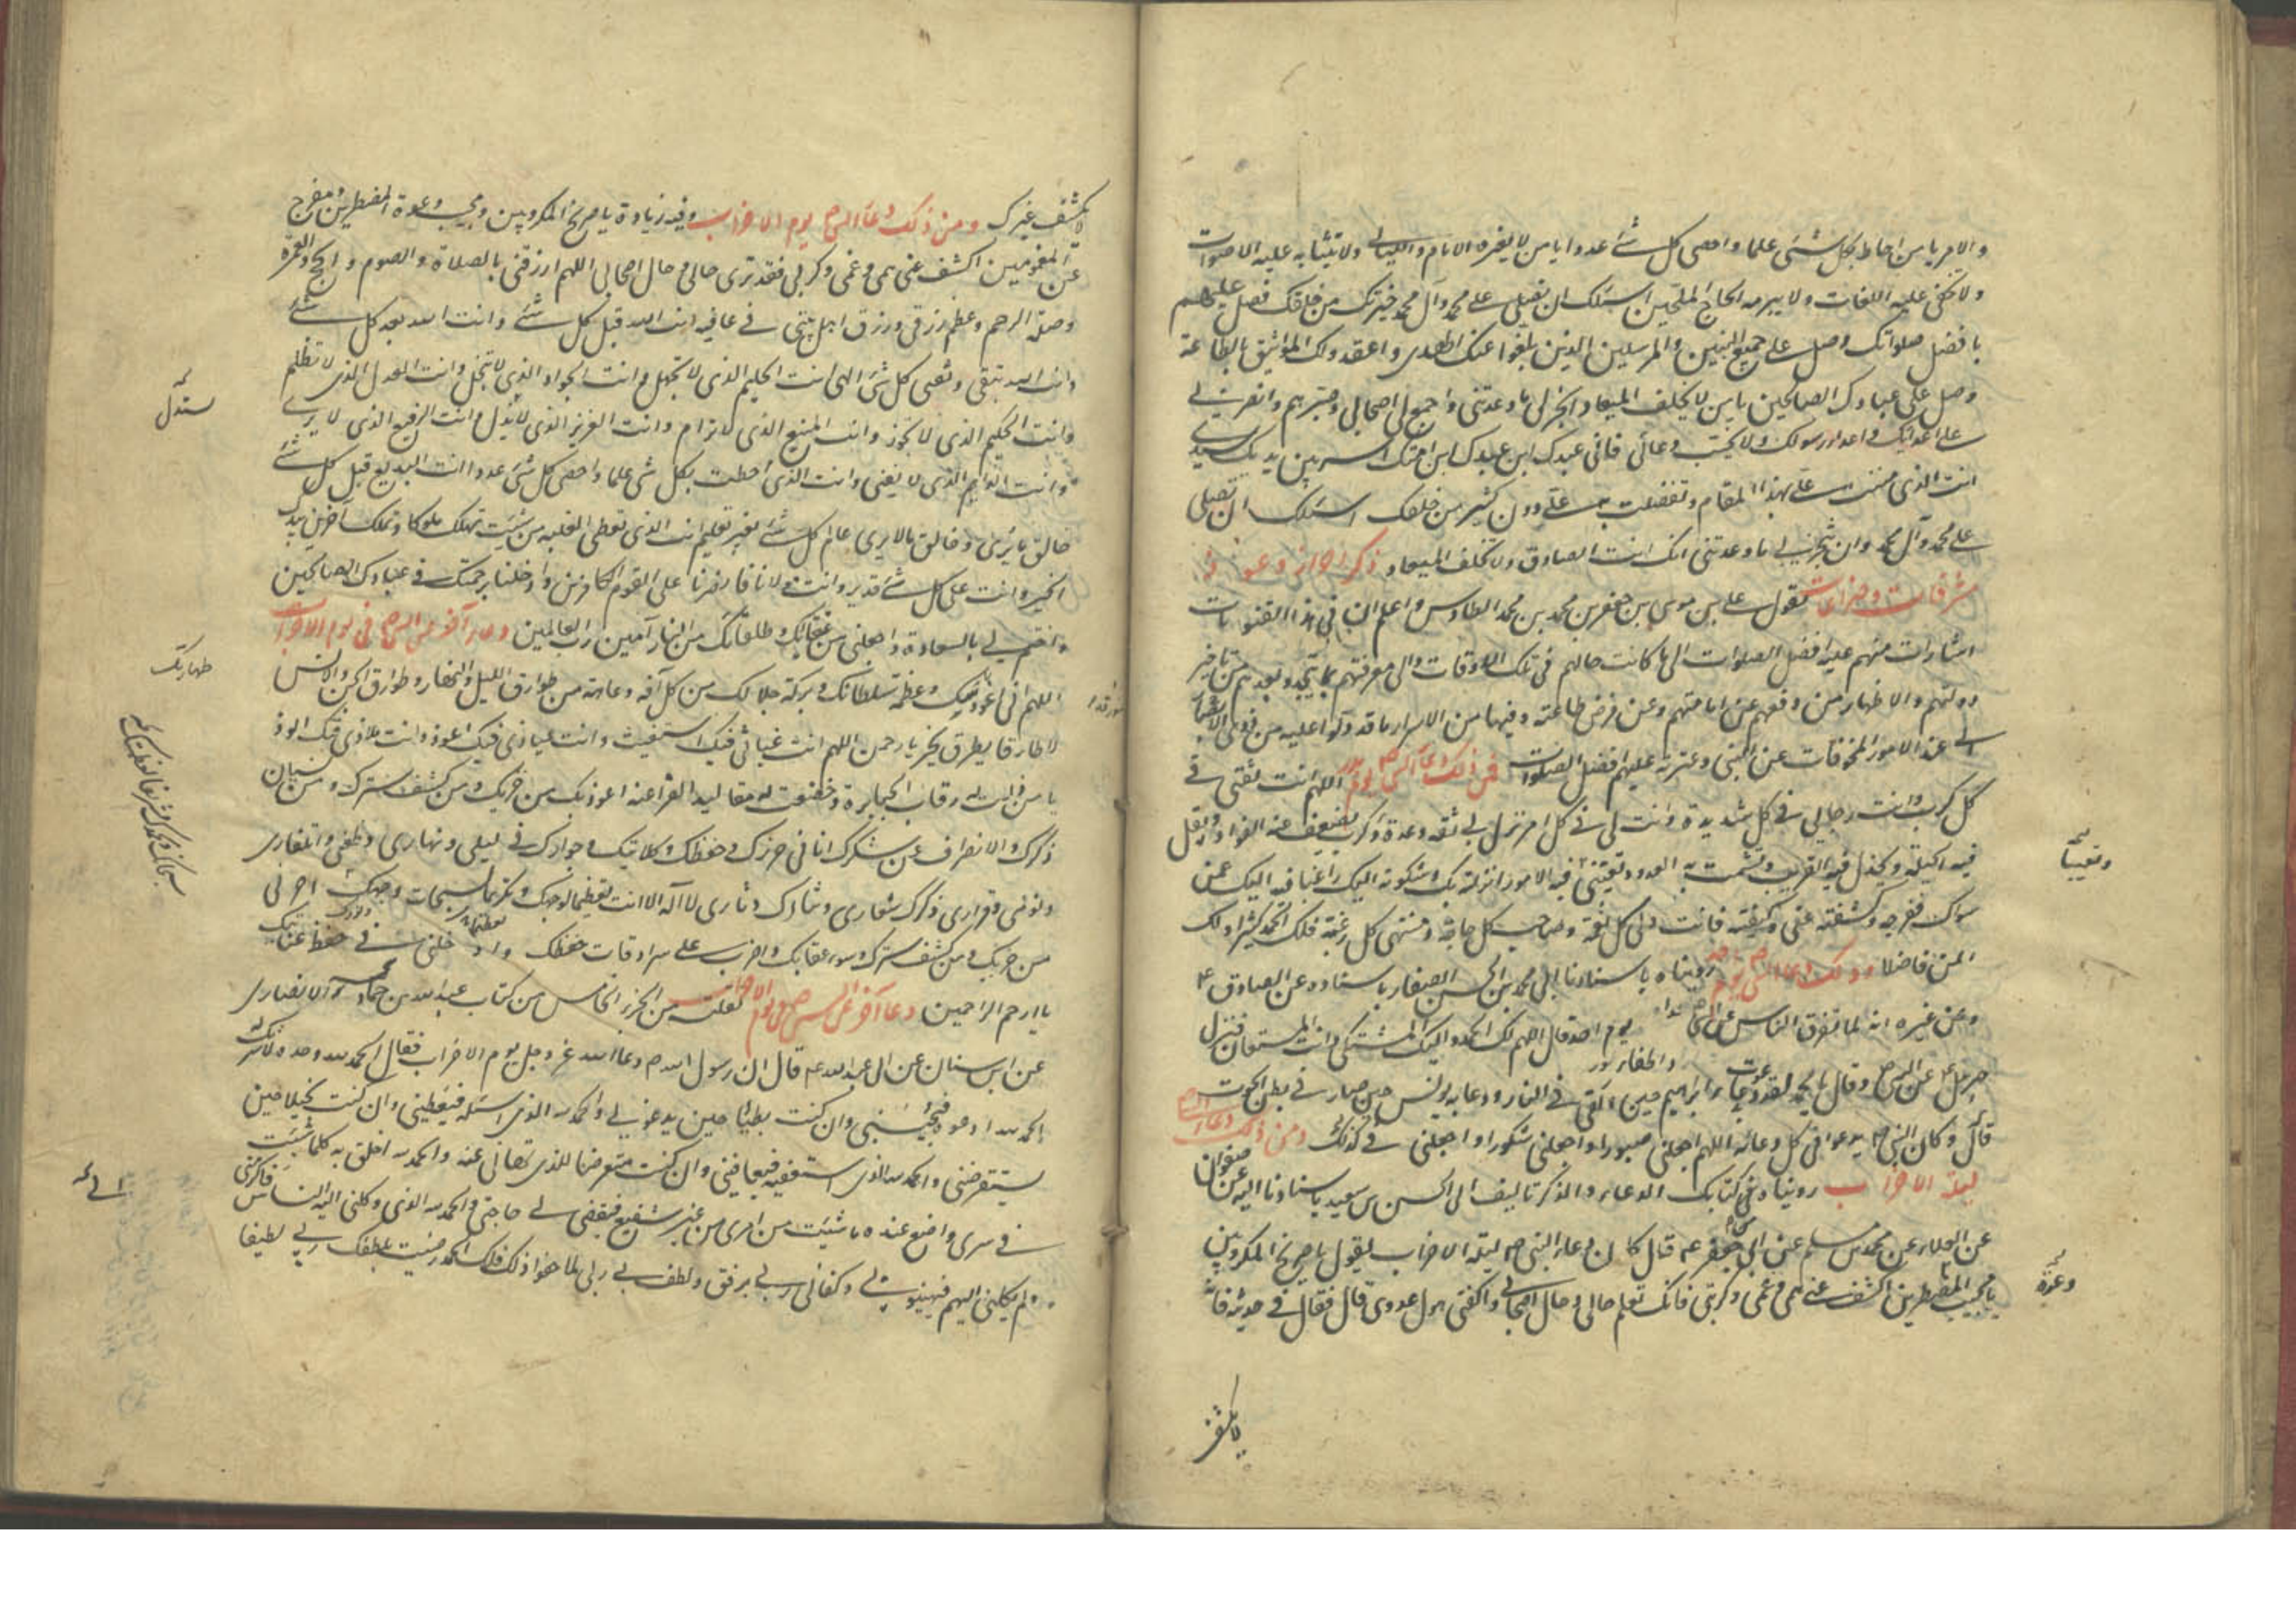 والامر يا من احاط بكل شئ علما واحصى كل شئ عددا يا من لا يغيره الايام والليالى ولا يتشابه عليه الاصوات
ولا تخفى عليه اللغات ولا يبرمه الحاح الملحين اسئلك ان تصلى على محمد وآل محمد خيرتك من خلقك فصل عليهم
بافضل صلواتك وصل على جميع النبيين والمرسلين الذين بلغوا عنك الهدى واعقدوا لك المواثيق بالطاعة
وصل على عبادك الصالحين يا من لا يخلف الميعاد انجز لى ما وعدتنى واجمع لى اصحابى وصبرهم وانصرنى
على اعدائك واعداء رسولك ولا تخيب دعائى فانى عبدك ابن عبدك ابن امتك اسير بين يديك سيدى
انت الذى مننت على بهذا المقام وتفضلت به على دون كثير من خلقك اسئلك ان تصلى
على محمد وآل محمد وان تنجز لى ما وعدتنى انك انت الصادق ولا تخلف الميعاد
يقول على بن موسى بن جعفر بن محمد بن محمد الطاوس واعلم ان فى هذا القنوتات
اشارات منهم عليه افضل الصلوات الى ما كانت حالهم فى تلك الاوقات والى معرفتهم بما يتجدد بعدهم من تاخير
دولتهم والاظهار من دفعهم عن امامتهم وعن فرض طاعته وفيها من الاسرار ما قد دلوا عليه من
عند الامور المخوفات عن النبى وعترته عليهم افضل الصلوات فمن ذلك دعاء النبى ص يوم بدر اللهم انت ثقتى فى
كل كرب وانت رجائى فى كل شديدة وانت لى فى كل امر نزل بى ثقة وعدة وكم من كرب يضعف عنه الفؤاد وتقل
فيه الحيلة ويخذل فيه القريب ويشمت به العدو وتعيينى فيه الامور انزلته بك وشكوته اليك راغبا فيه اليك عمن
سواك ففرجته وكشفته عنى وكفيته فانت ولى كل نعمة وصاحب كل حاجة ومنتهى كل رغبة فلك الحمد كثيرا ولك
المن فاضلا ومن ذلك دعاء النبى ص يوم احد رويناه باسنادنا الى محمد بن الحسن الصفار باسناده عن الصادق ع
وعن غيره انه لما تفرق الناس عن النبى ص يوم احد قال اللهم لك الحمد واليك المشتكى وانت المستعان فنزل
جبرئيل ع عن النبى ص وقال يا محمد لقد دعوت بدعاء ابراهيم حين القى فى النار ودعا به يونس حين صار فى بطن الحوت
قال وكان النبى ص يدعو فى كل دعائه اللهم اجعلنى صبورا واجعلنى شكورا واجعلنى فى ومن ذلك دعاء النبى ص
ليلة الاحزاب رويناه من كتابك الدعاء والذكر تاليف الحسن بن سعيد باسنادنا اليه عن صفوان
عن العلاء عن محمد بن مسلم عن ابى جعفر ع قال كان دعاء النبى ص ليلة الاحزاب يقول يا صريخ المكروبين
يا مجيب المضطرين اكشف عنى همى وغمى وكربتى فانك تعلم حالى وحال اصحابى واكفنى هول عدوى قال فقال فى حديثه فانه
وتعيينا
دعوة
لا يكشف
لا يكشف غيرك ومن ذلك دعاء النبى ص يوم الاحزاب وفيه زيادة يا صريخ المكروبين ومجيب دعوة المضطرين ومفرج
عن المغمومين اكشف عنى همى وغمى وكربى فقد ترى حالى وحال اصحابى اللهم ارزقنى بالصلاة والصوم والحج والعمرة
وصلة الرحم وعظم رزقى ورزق اهل بيتى فى عافية انت الله قبل كل شئ وانت الله بعد كل شئ
وانت الله تبقى وتفنى كل شئ الهى انت الحليم الذى لا تجهل وانت الجواد الذى لا تبخل وانت العدل الذى لا تظلم
وانت الحكيم الذى لا تجور وانت المنيع الذى لا ترام وانت العزيز الذى لا تذل وانت الرفيع الذى لا يرى
وانت الدايم الذى لا يفنى وانت الذى احطت بكل شئ علما واحصى كل شئ عددا انت البديع قبل كل شئ
خالق ما يرى وخالق ما لا يرى عالم كل شئ بغير تعليم انت الذى تعطى الغلبة من شئت تهلك ملوكا وتملك آخرين بيدك
الخير وانت على كل شئ قدير وانت مولانا فانصرنا على القوم الكافرين وادخلنا برحمتك فى عبادك الصالحين
واختم لى بالسعادة واجعلنى من عتقائك وطلقائك من النار آمين رب العالمين دعاء آخر عن النبى ص فى يوم الاحزاب
اللهم انى اعوذ بك وعظمة سلطانك وبركة جلالك من كل آفة وعاهة من طوارق الليل والنهار وطوارق الجن والانس
الا طارقا يطرق بخير يا رحمن اللهم انت غياثى فبك استغيث وانت عياذى فبك اعوذ وانت ملاذى فبك الوذ
يا من ذلت له رقاب الجبابرة وخضعت له مقاليد الفراعنة اعوذ بك من خزيك ومن كشف سترك ومن نسيان
ذكرك والانصراف عن شكرك انا فى حرزك وحفظك وكلائتك وجوارك فى ليلى ونهارى وظعنى واسفارى
ونومى وقرارى ذكرك شعارى وثناؤك دثارى لا اله الا انت تعظيما لوجهك وتكريما لسبحات وجهك اجرنى
من خزيك ومن كشف سترك وسوء عقابك واضرب على سرادقات حفظك وادخلنى فى حفظ عنايتك
يا ارحم الراحمين دعاء آخر عن النبى ص يوم الاحزاب نقلته من الجزء الخامس من كتاب عبد الله بن حماد الانصارى
عن ابن سنان عن ابى عبد الله ع قال ان رسول الله ص دعا الله عز وجل يوم الاحزاب فقال الحمد لله وحده لا شريك له
الحمد لله ادعوه فيجيبنى وان كنت بطيئا حين يدعونى والحمد لله الذى اسئله فيعطينى وان كنت بخيلا حين
يستقرضنى والحمد لله الذى استعفيه فيعافينى وان كنت متعرضا للذى نهانى عنه والحمد لله اخلو به كلما شئت
فى سرى واضع عنده ما شئت من امرى من غير شفيع فيقضى لى حاجتى والحمد لله الذى وكلنى اليه الناس فاكرمنى
ولم يكلنى اليهم فيهينونى وكفانى ربى برفق ولطف بى ربى لما جفوا ذلك فلك الحمد رضيت بلطفك ربى لطيفا
طهارتك